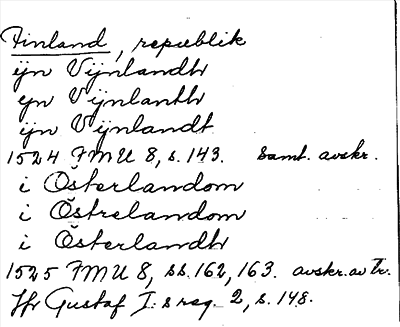 Finland, republik
ÿn Vÿnlandh
yn Vÿnlanth
ÿn Vÿnlandt
1524 FMU 8, s. 143. Samt. avskr.
i Österlandom
i Östrelandom
i Österlandh
1525 FMU 8, ss. 162, 163. avskr. av Tr.
Jfr Gustaf I:s reg. 2, s. 148.